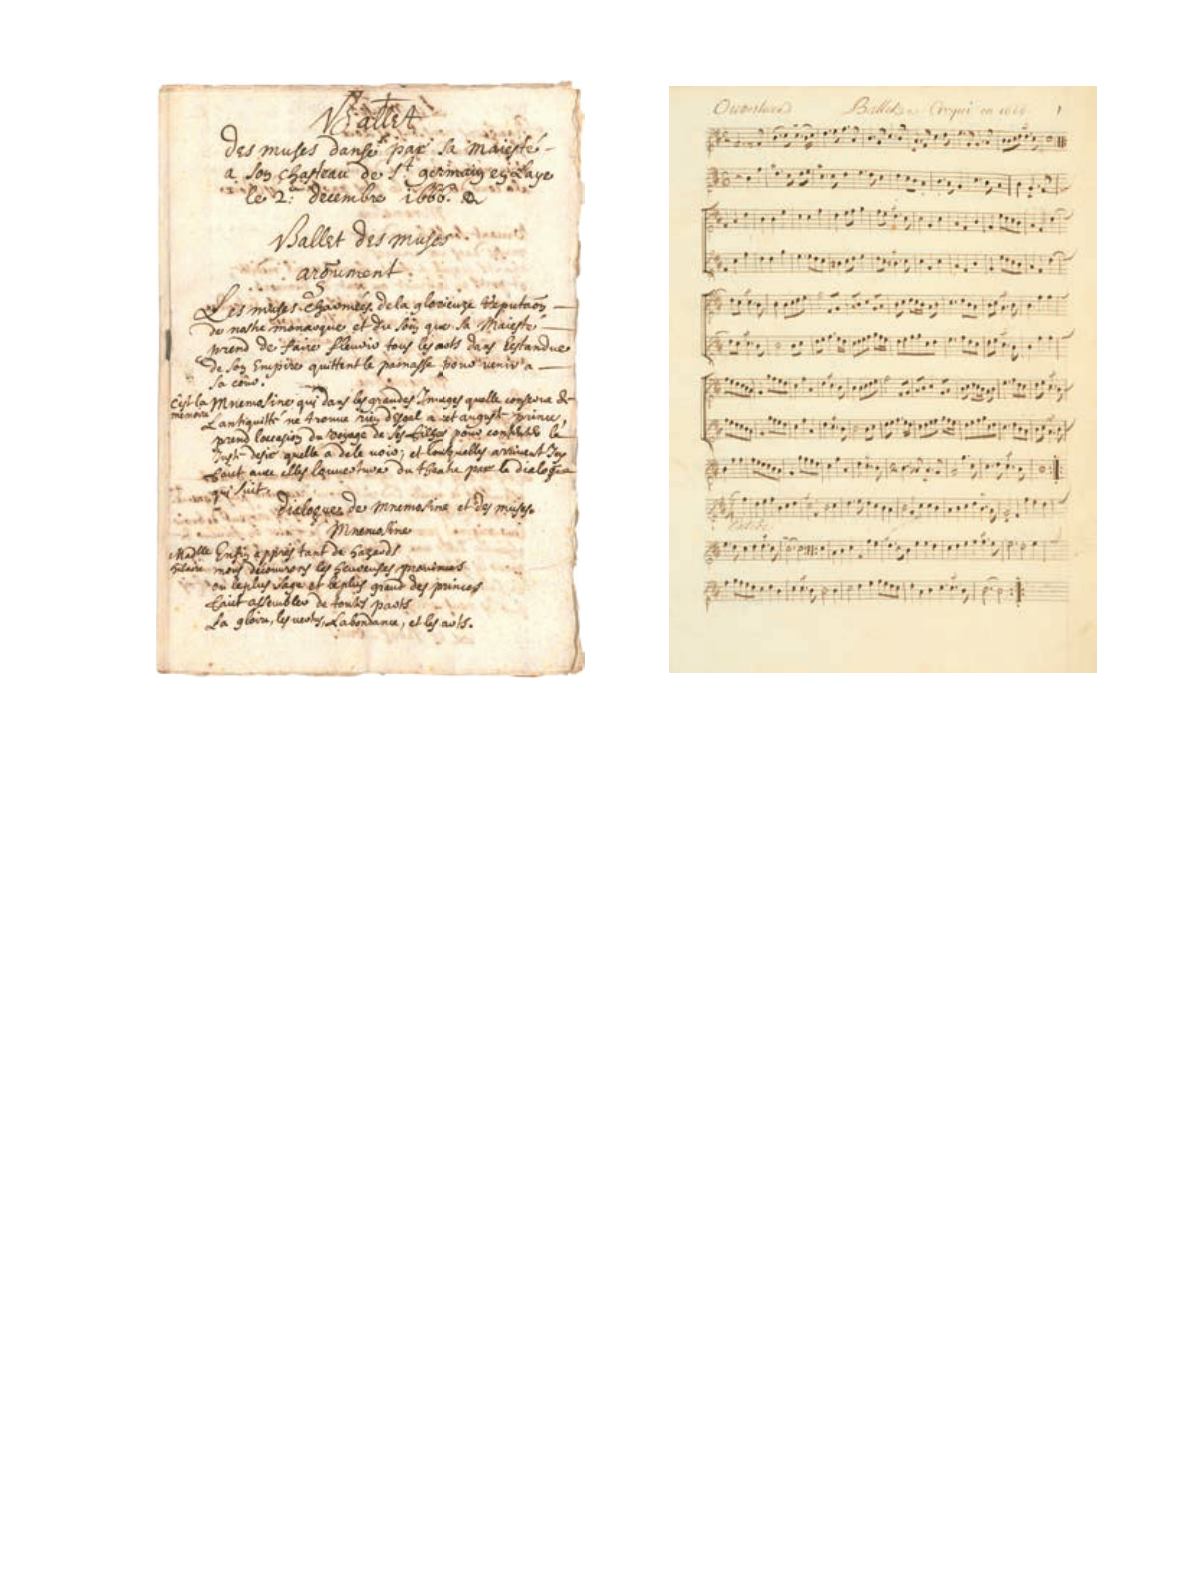 Ballet
des muses dansé par sa maiesté
a son chasteau de St germain en Laye
le 2. decembre 1666.
Ballet des muses
argument
Les muses charmées de la glorieuze reputaon
de nostre monarque et du soin que sa Maiesté
prend de faire fleurir tous les arts dans lestandue
de son Empire quittent le parnasse pour venir a
sa cour.
c'est la
memoire
Mnemosine qui dans les grandes Images quelle conserve de
Lantiquitté ne trouve rien desgal a cet auguste prince,
prend loccasion du voyage de ses filles pour contenter le
juste desir quelle a de le voir; et lorsquelles arrivent Icy
faict avec elles louverture du theatre par le dialogue
qui suit.
Dialogue de Mnemosine et des muses.
Mnemosine
Madlle
hilaire
Enfin appres tant de hazards
nous decouvrons les heureuses provinces
ou le plus sage et le plus grand des princes
faict assembler de touts parts
La gloire, les vertus, Labondance, et les arts.
Ouverture Ballet de Crequi en 1666 1